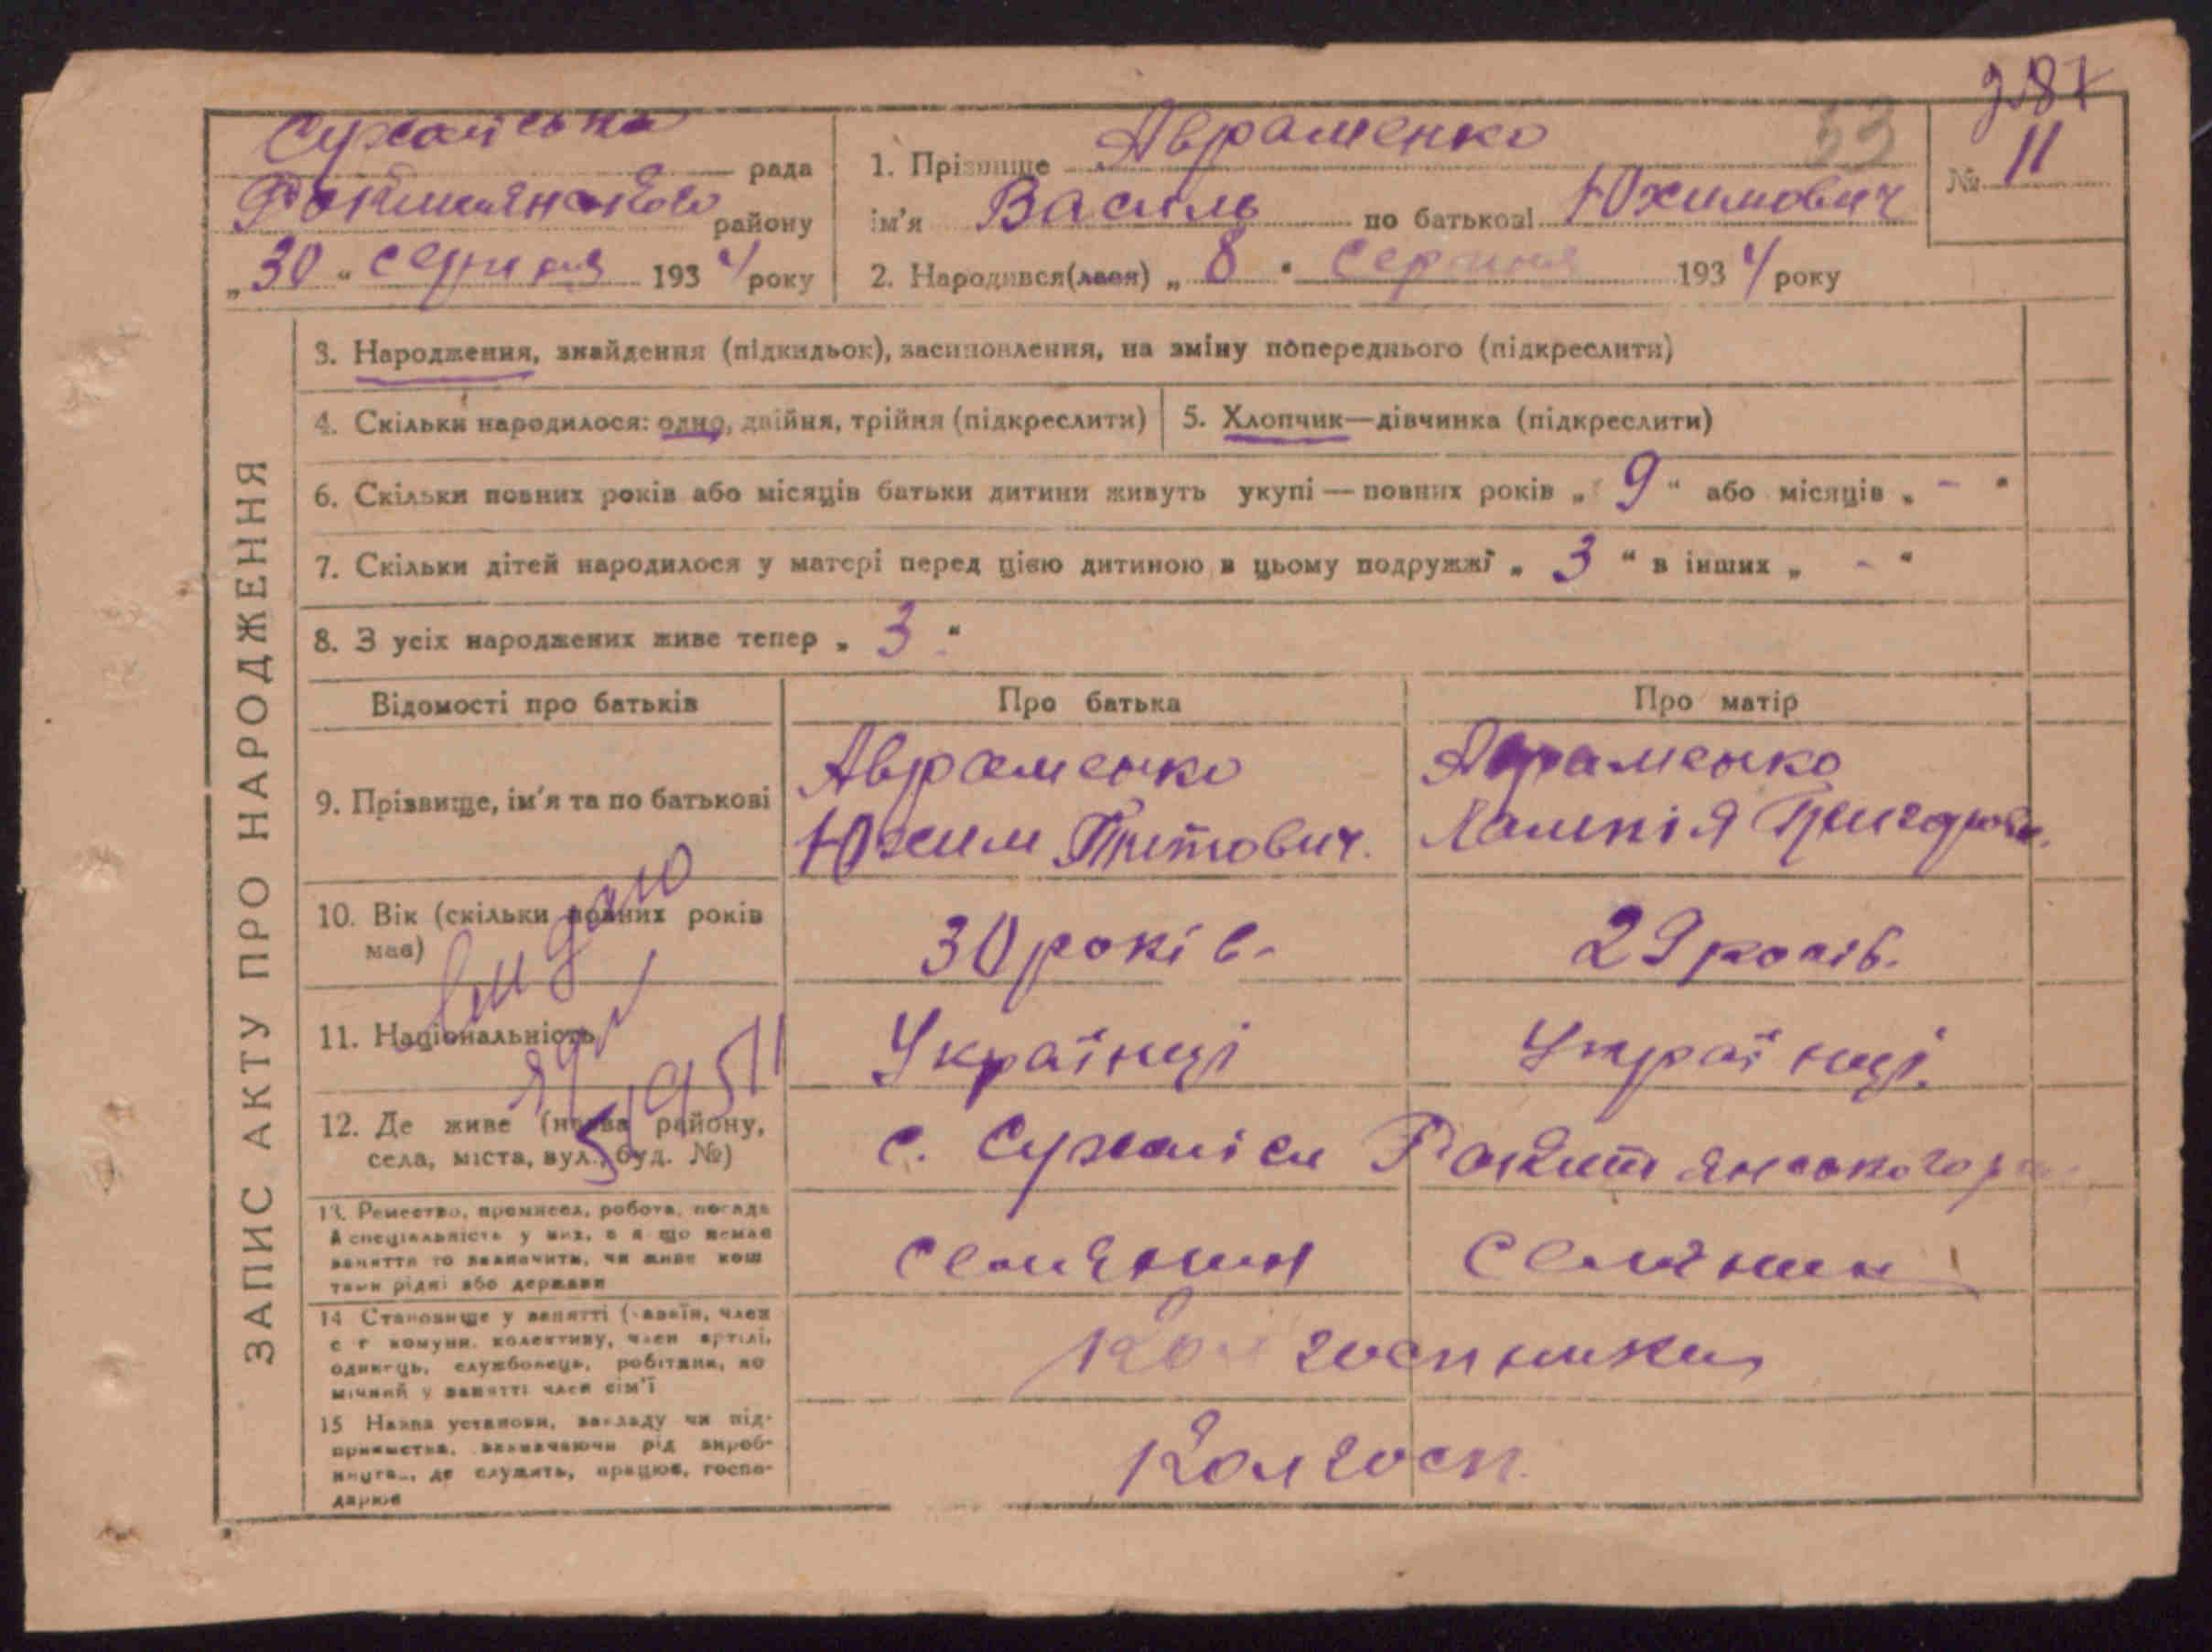 287
53
Сухаліська рада
Рокитянського району
„30“ серпня 1934 року
1. Прізвище Авраменко
ім'я Василь по батькові Юхимович
2. Народився(лася) „8“ серпня 1934 року
№ 11
ЗАПИС АКТУ ПРО НАРОДЖЕННЯ
3. Народження, знайдення (підкидьок), засиновлення, на зміну попереднього (підкреслити)
4. Скільки народилося: одно, двійня, трійня (підкреслити)
5. Хлопчик—дівчинка (підкреслити)
6. Скільки повних років або місяців батьки дитини живуть укупі — повних років „9“ або місяців „-“
7. Скільки дітей народилося у матері перед цією дитиною в цьому подружжі „3“ в інших „-“
8. З усіх народжених живе тепер „3“
Відомості про батьків
Про батька
Про матір
9. Прізвище, ім'я та по батькові
Авраменко
Юхим Титович.
Авраменко
Лампія Григоров.
10. Вік (скільки повних років
має)
30 років.
29 років.
11. Національність
Українці
Українці.
12. Де живе (назва району,
села, міста, вул., буд. №)
с. Сухаліси Рокитянського р
13. Ремество, промисел, робота, посада
й спеціальність у них, а якщо немає
заняття то зазначити, чи живе кош
тами рідні або держави
селянин
селянин
14 Становище у занятті (хазяїн, член
с г комуни, колективу, член артілі,
одинець, службовець, робітник, по
мічний у занятті член сім'ї
Колгоспники
15 Назва установи, закладу чи під-
приємства, зазначаючи рід вироб-
ництва, де служить, працює, госпо-
дарює
Колгосп.